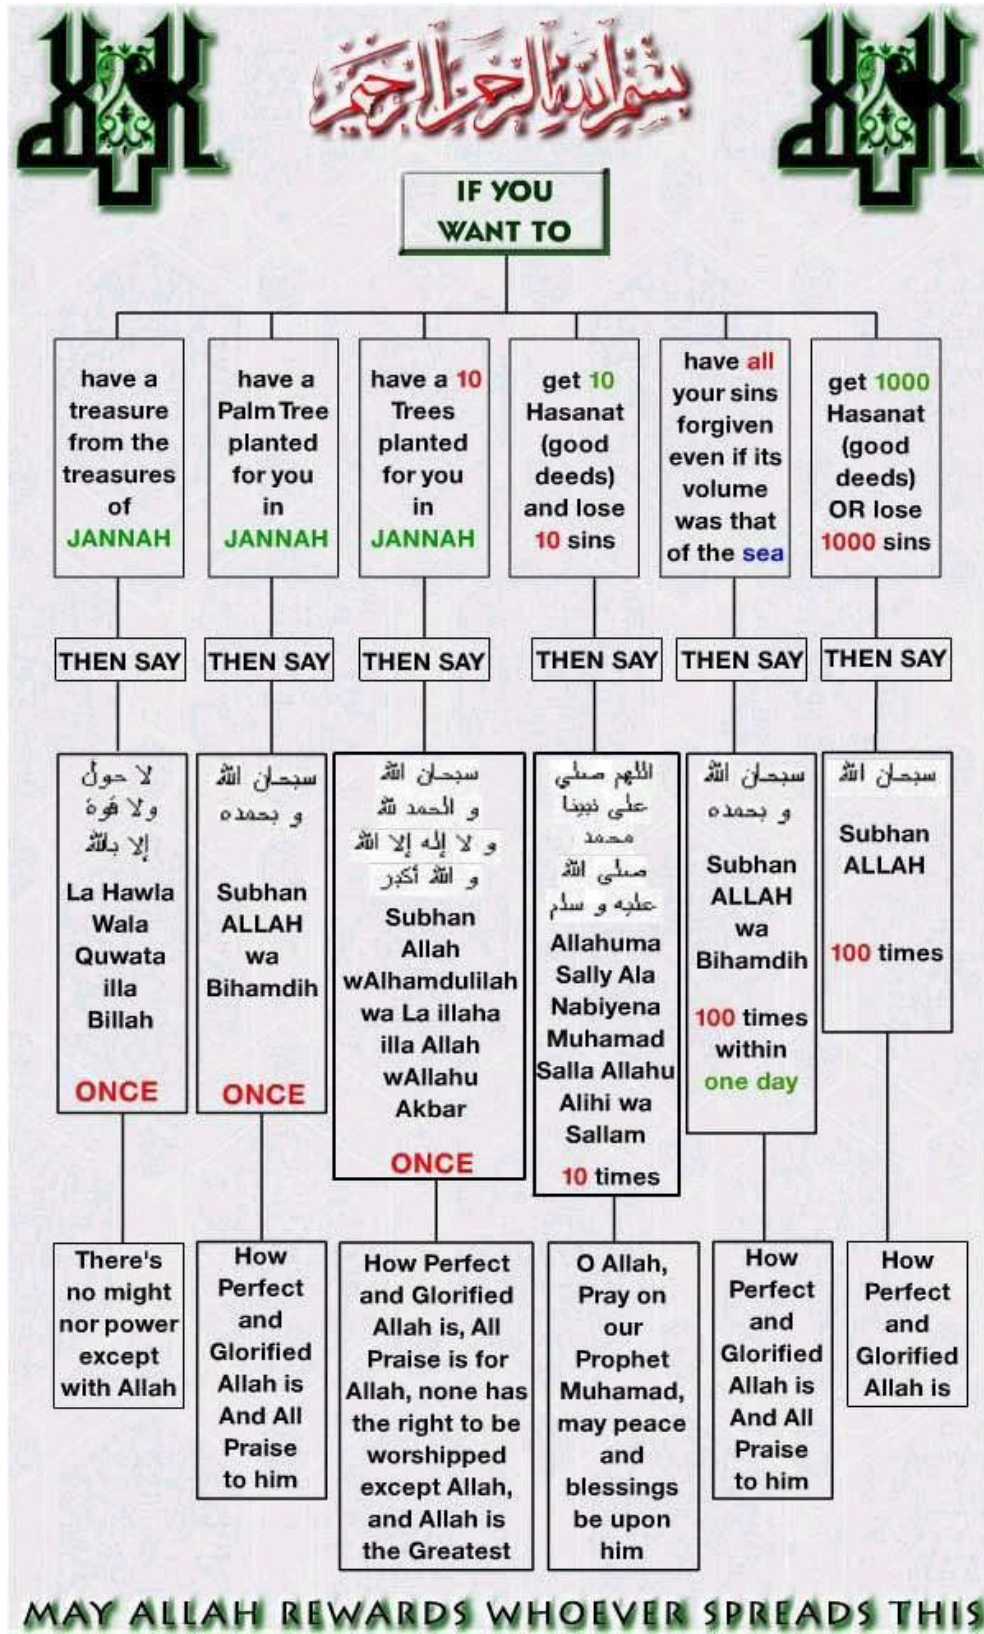 بسم الله الرحمن الرحيم
IF YOU
WANT TO
have a
treasure
from the
treasures
of
JANNAH
have a
Palm Tree
planted
for you
in
JANNAH
have a 10
Trees
planted
for you
in
JANNAH
get 10
Hasanat
(good
deeds)
and lose
10 sins
have all
your sins
forgiven
even if its
volume
was that
of the sea
get 1000
Hasanat
(good
deeds)
OR lose
1000 sins
THEN SAY
THEN SAY
THEN SAY
THEN SAY
THEN SAY
THEN SAY
لا حول
ولا قوة
إلا بالله
La Hawla
Wala
Quwata
illa
Billah
ONCE
سبحان الله
و بحمده
Subhan
ALLAH
wa
Bihamdih
ONCE
سبحان الله
و الحمد لله
و لا إله إلا الله
و الله أكبر
Subhan
Allah
wAlhamdulilah
wa La illaha
illa Allah
wAllahu
Akbar
ONCE
اللهم صلي
على نبينا
محمد
صلى الله
عليه و سلم
Allahuma
Sally Ala
Nabiyena
Muhamad
Salla Allahu
Alihi wa
Sallam
10 times
سبحان الله
و بحمده
Subhan
ALLAH
wa
Bihamdih
100 times
within
one day
سبحان الله
Subhan
ALLAH
100 times
There's
no might
nor power
except
with Allah
How
Perfect
and
Glorified
Allah is
And All
Praise
to him
How Perfect
and Glorified
Allah is, All
Praise is for
Allah, none has
the right to be
worshipped
except Allah,
and Allah is
the Greatest
O Allah,
Pray on
our
Prophet
Muhamad,
may peace
and
blessings
be upon
him
How
Perfect
and
Glorified
Allah is
And All
Praise
to him
How
Perfect
and
Glorified
Allah is
MAY ALLAH REWARDS WHOEVER SPREADS THIS